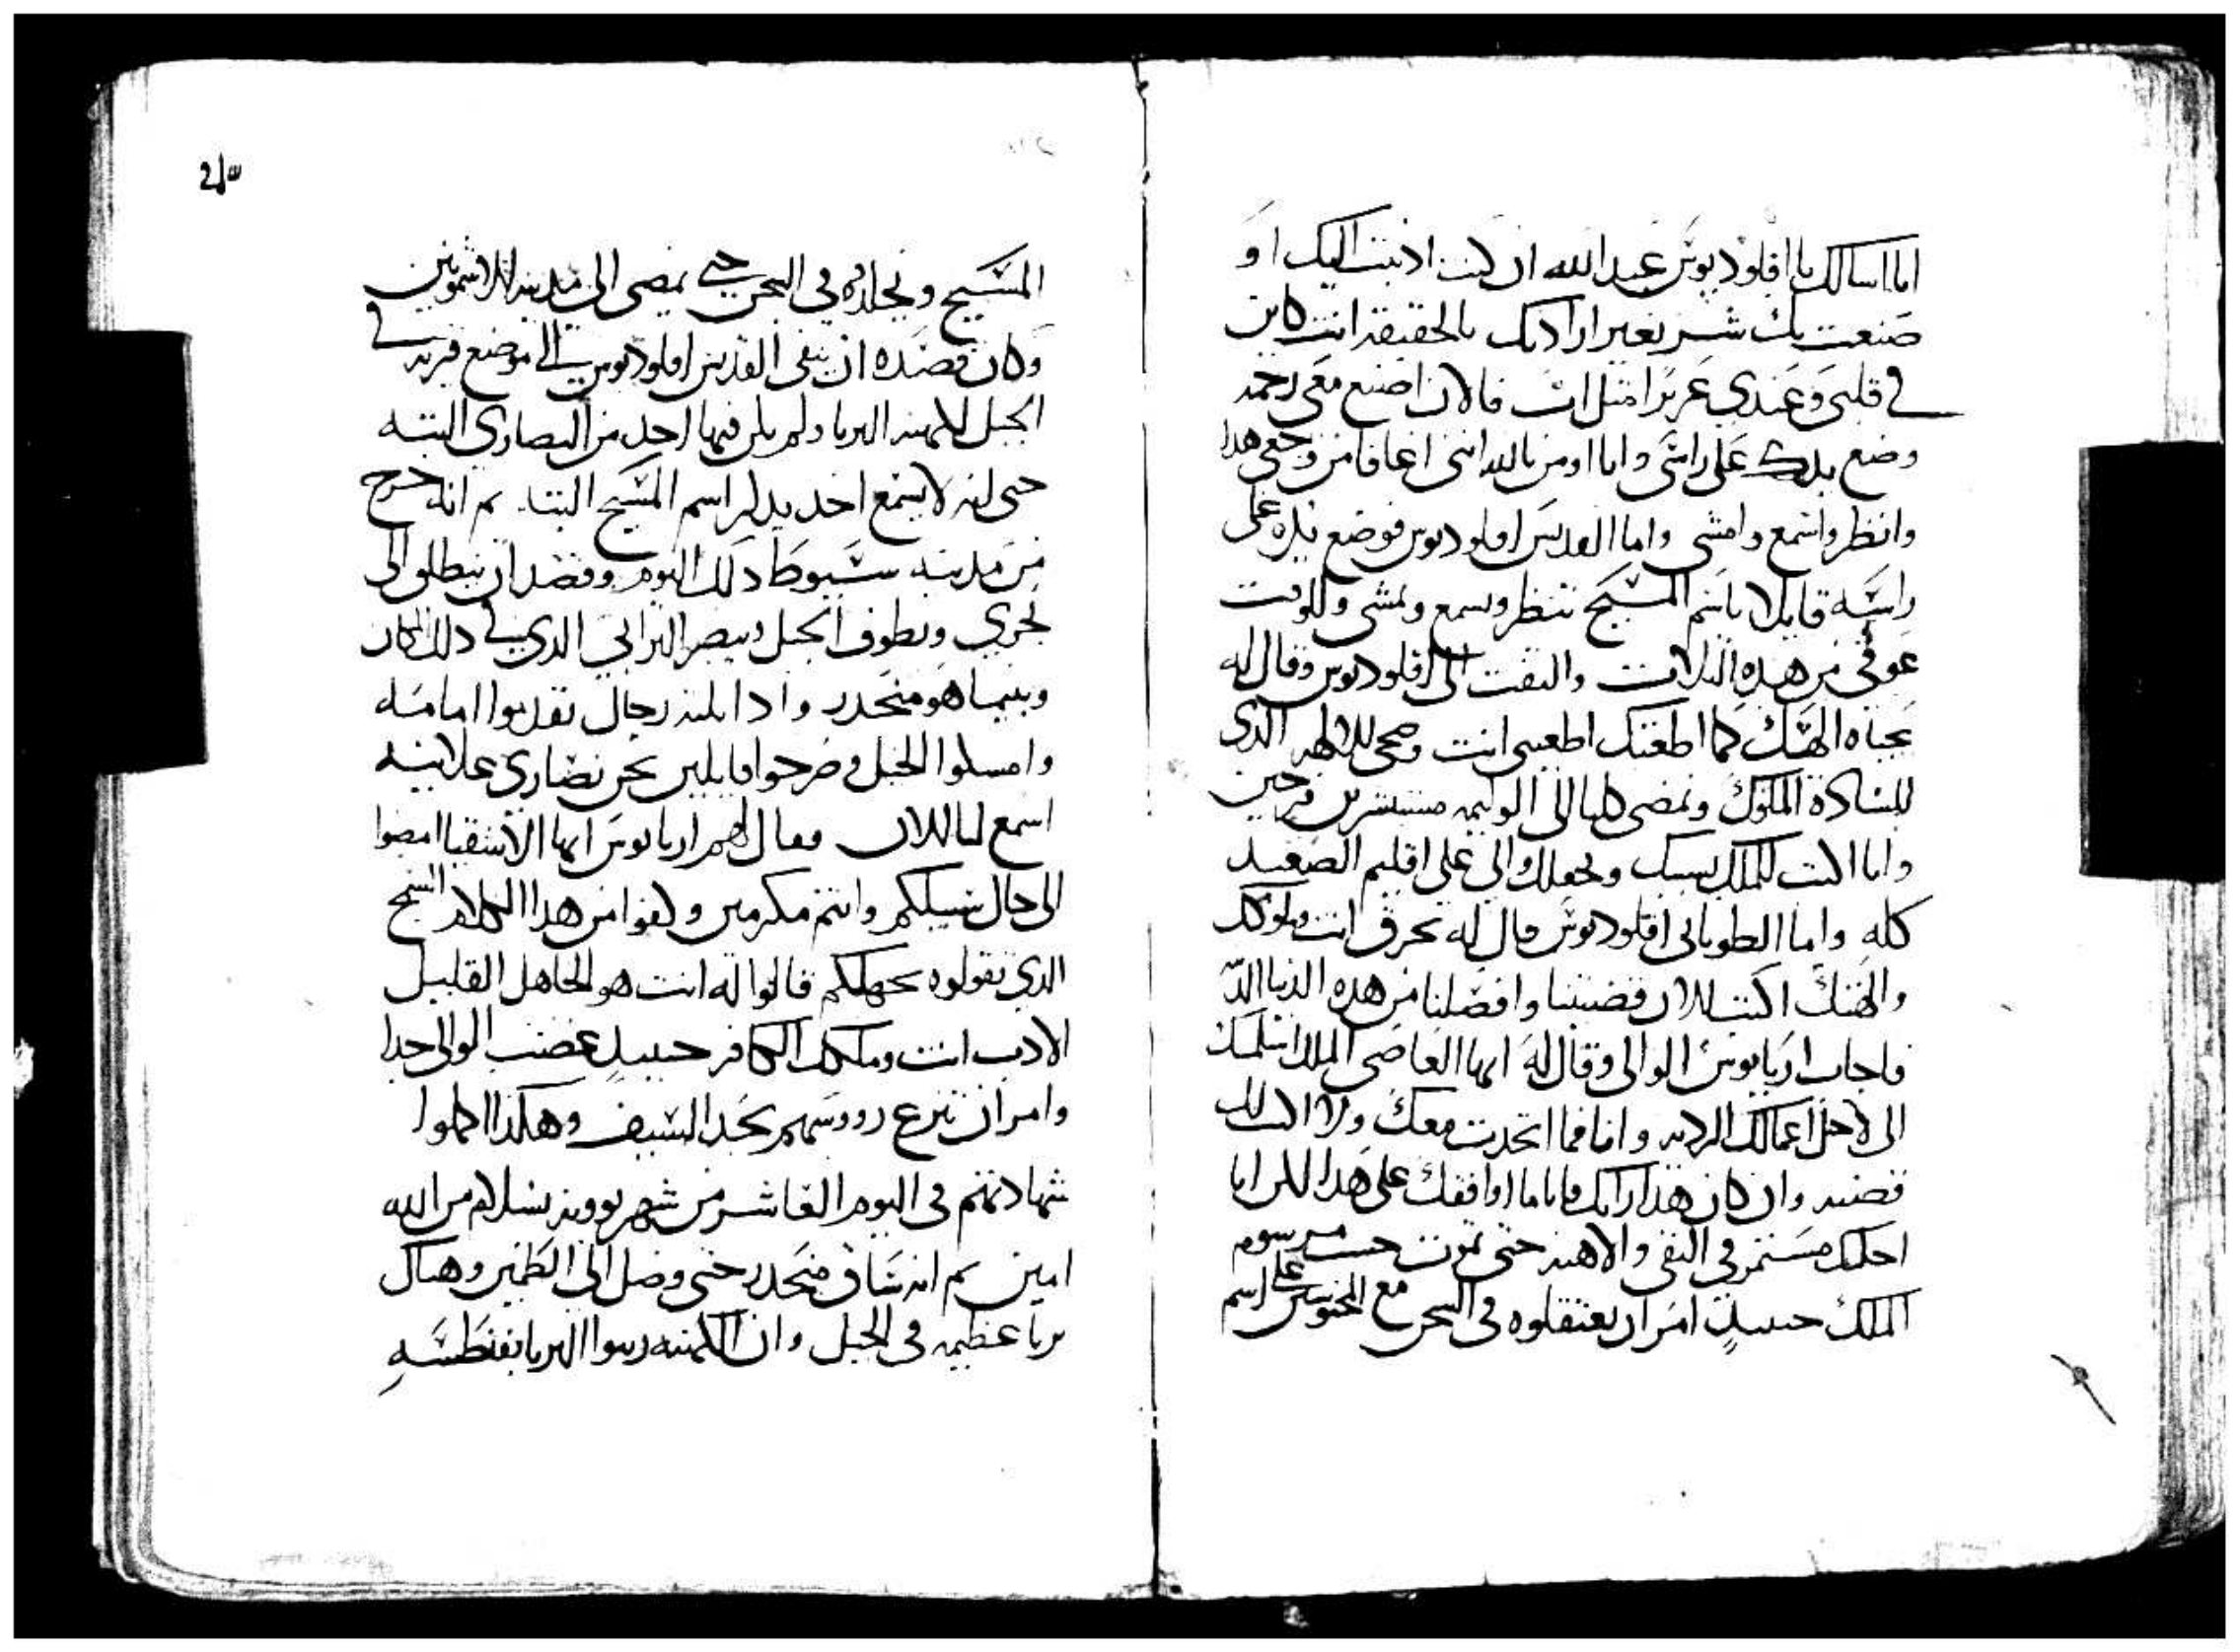 اما اسالك يا اقلوديوس عبد الله ان كنت اذنبت اليك او
صنعت بك شر بغير ارادتك بالحقيقة انت كاين
في قلبى وعندي عزيزا مثل اب فالان اصنع معى رحمه
وضع يدك على راسى وانا اومن بالله اننى اعافا من وجعى هدا
وانظر واسمع وامشى واما القديس اقلوديوس فوضع يده على
راسه قايلا باسم المسيح تنظر وتسمع وتمشى وللوقت
عوفى من هذه البلايات والتفت الى اقلوديوس وقال له
بحياه الهك كما اطعتك اطعنى انت وضحى للالهه الذى
للساده الملوك ونمضى كلنا الى الوليمه مستبشرين فرحين
وانا اكتب للملك بسببك ويجعلك والى على اقليم الصعيد
كله واما الطوبانى اقلوديوس قال له تحرق انت وملوكك
والهتك اكتب الان قضيتنا وافصلنا من هذه الدنيا
فاجاب اريانوس الوالى وقال له ايها العاصى الملك اسلمك
الى لاجل اعمالك الرديه وانا فما اتحدث معك ولا اكتب لك
قضيه وان كان هذا رايك فانا ما اوافقك على هذا لكن انا
اجعلك مستمر فى النفى والاهنه حتى تموت حسب مرسوم
الملك حينيد امر ان يعتقلوه فى السجن مع المحبوسين على اسم
المسيح ويحدره فى البحر حتى يمضى الى مدينه الاشمونين
وكان قصده ان ينفى القديس اقلوديوس الى موضع قريه فى
الجبل لكهنه البربا ولم يكن فيها احد من النصارى البته
حتى انه لا يسمع احد يذكر اسم المسيح البته. ثم انه خرج
من مدينه سيوط ذلك اليوم وقصد ان ينطلق الى
بحري ويطوف الجبل ويبصر البرابى الذي فى ذلك المكان
وبينما هو منحدر واذا بثلثه رجال تقدموا امامه
وامسكوا الخيل وصرخوا قايلين نحن نصارى علانيه
اسمع لنا الان فقال لهم اريانوس ايها الاشقيا امضوا
الى حال سبيلكم وانتم مكرمين وكفوا من هذا الكلام السمج
الذي تقولوه بجهلكم قالوا له انت هو الجاهل القليل
الادب انت وملكك الكافر حينيدٍ غضب الوالى جدا
وامر ان تنزع رووسهم بحد السيف وهكذا اكملوا
شهادتهم فى اليوم العاشر من شهر بوونه بسلام من الله
امين ثم انه سافر منحدر حتى وصل الى القصير وهناك
بربا عظيمه فى الجبل وان الكهنه زينوا البربا بفنطسه